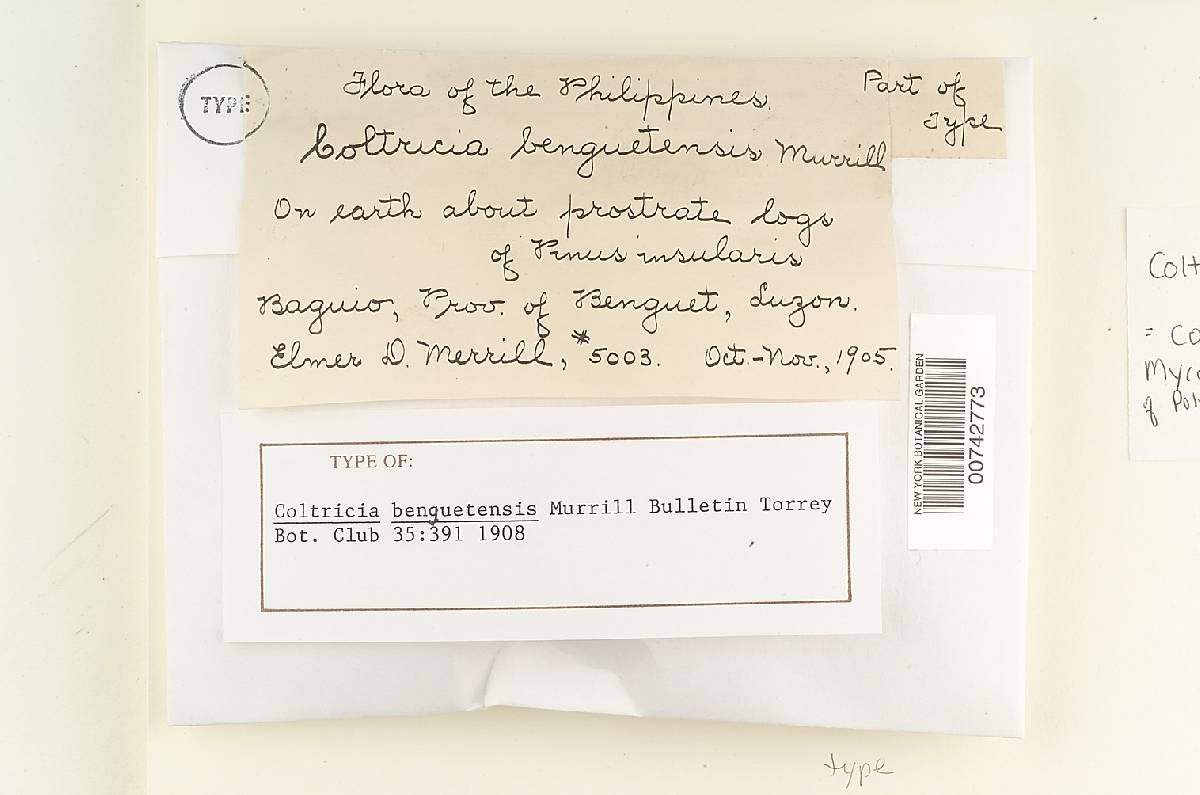 TYPE
Flora of the Philippines.
Part of
Type
Coltricia benguetensis Murrill
On earth about prostrate logs
of Pinus insularis
Baguio, Prov. of Benguet, Luzon.
Elmer D. Merrill, #5003. Oct.-Nov., 1905.
TYPE OF:
Coltricia benguetensis Murrill Bulletin Torrey
Bot. Club 35:391 1908
NEW YORK BOTANICAL GARDEN
00742773
Colt
= Co
Myco
of Pol
type